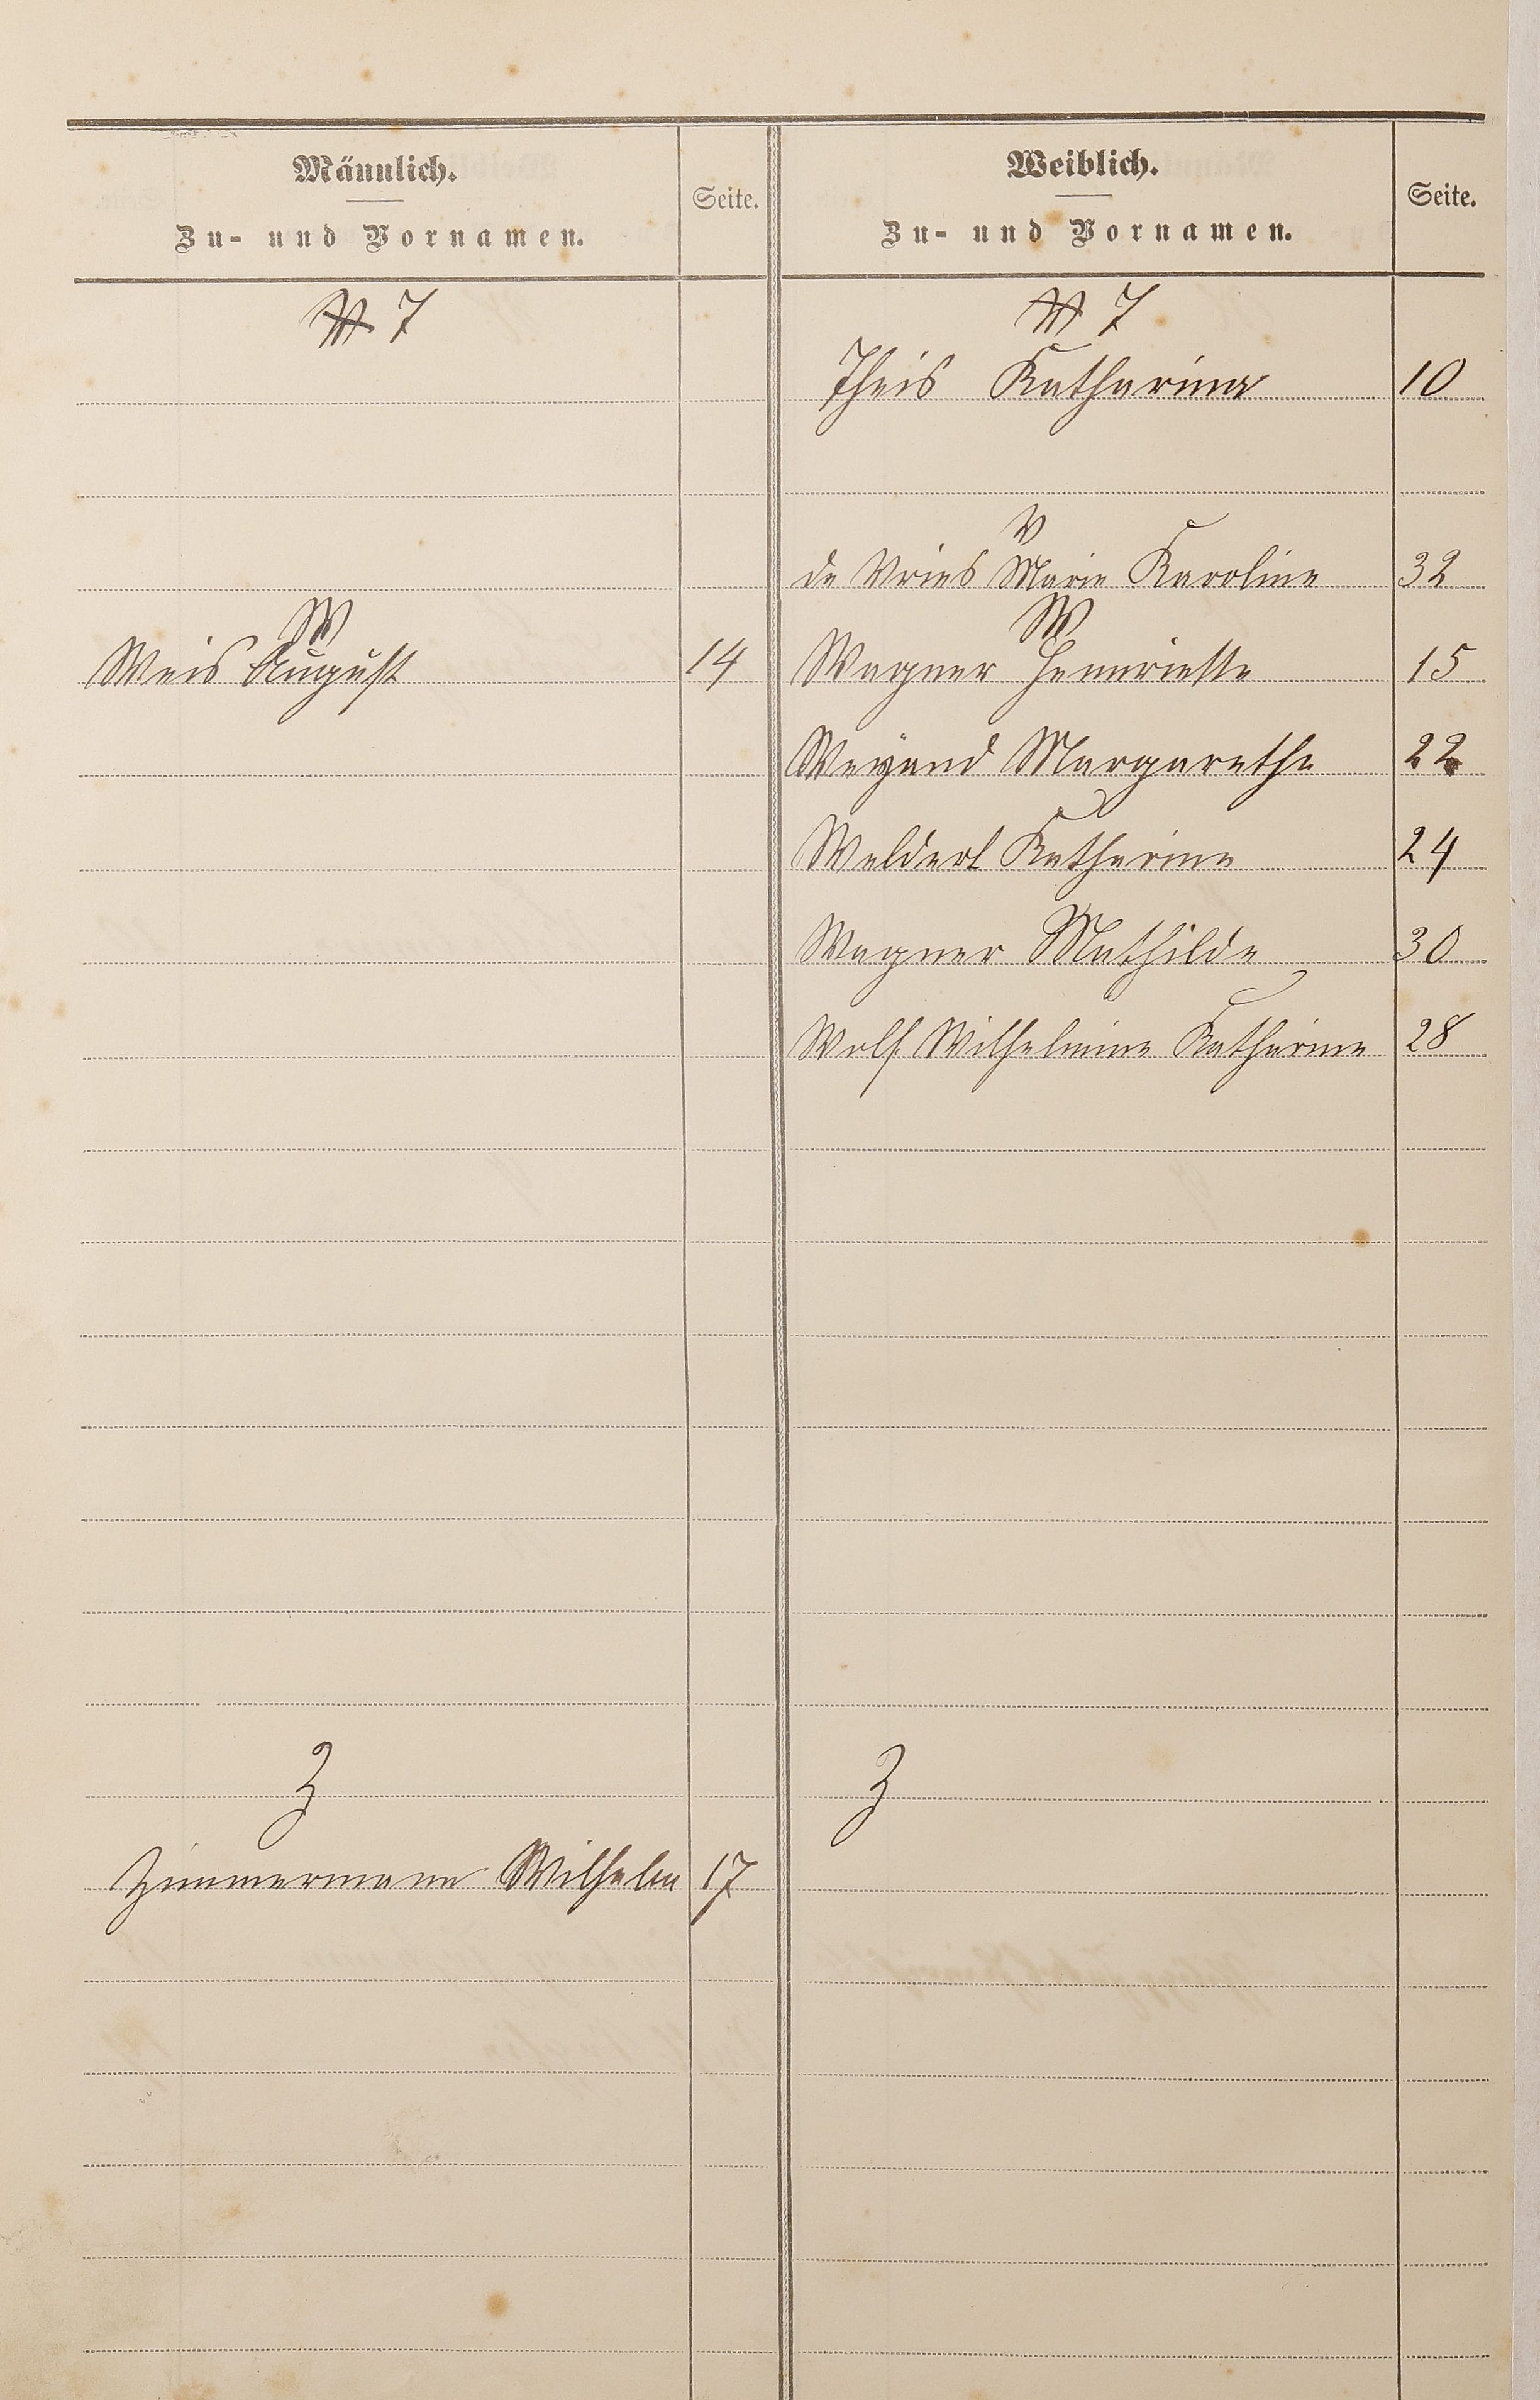 Männlich.
Zu- und Vornamen.
Seite.
Weiblich.
Zu- und Vornamen.
Seite.
W T
W T
Theis Katharina 10
V
de Vries Marie Karoline 32
W
Weis August 14
W
Wagner Henriette 15
Weyand Margarethe 22
Weldert Katharine 24
Wagner Mathilde 30
Wolf Wilhelmine Katharine 28
Z
Z
Zimmermann Wilhelm 17